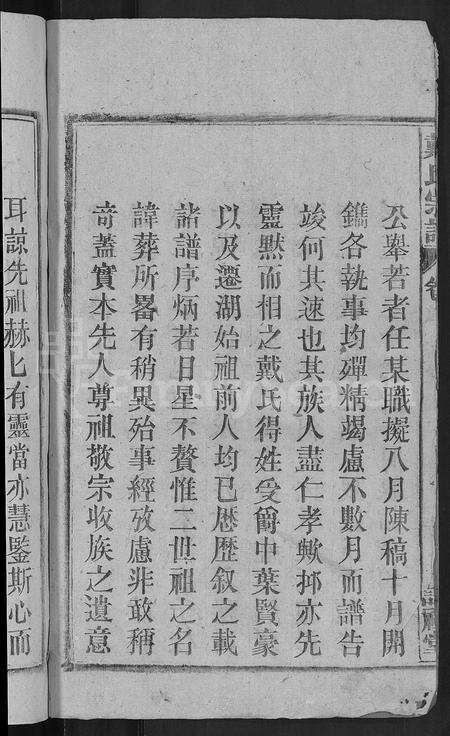 戴氏宗譜 卷
公舉若者任某職擬八月陳稿十月開
鐫各執事均殫精竭慮不數月而譜告
竣何其速也其族人盡仁孝歟抑亦先
靈默而相之戴氏得姓受爵中葉賢豪
以及遷湖始祖前人均已歷歷叙之載
諸譜序炳若日星不贅惟二世祖之名
諱葬所畧有稍異殆事經攷慮非敢稱
竒蓋實本先人尊祖敬宗收族之遺意
耳諒先祖赫匕有靈當亦慧鑒斯心而